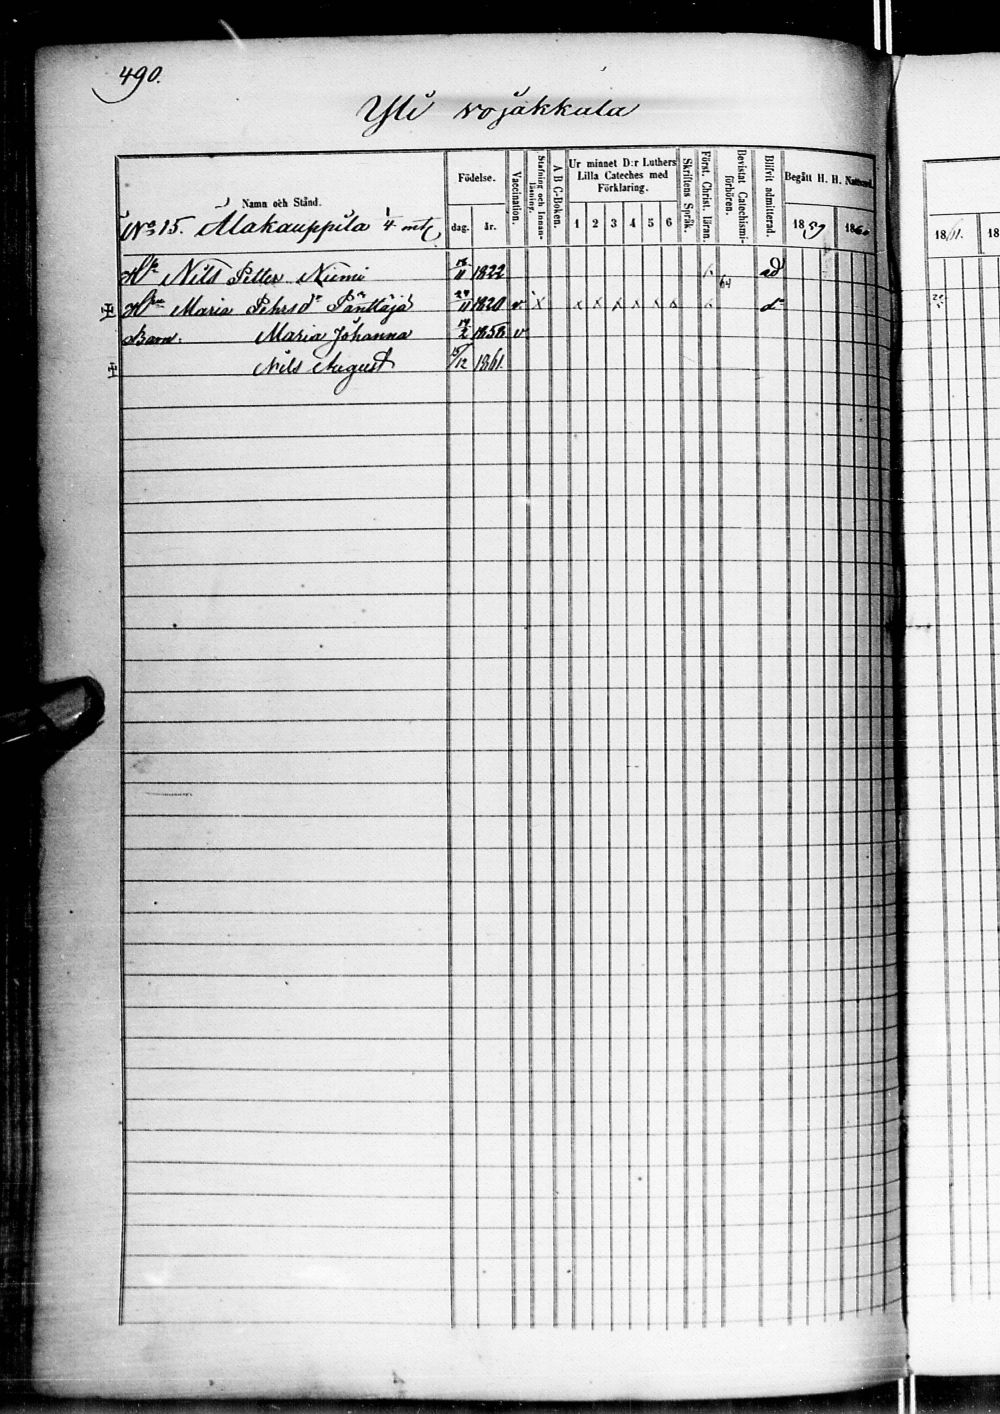 490.
Yli vojakkala
Namn och Stånd.
Födelse.
dag. år.
Vaccination.
Stafning och Innanläsning.
A B C-Boken.
Ur minnet D:r Luthers Lilla Cateches med Förklaring.
1 2 3 4 5 6
Skriftens Språk.
Först. Christ. läran.
Bevistat Catechismiförhören.
Blifvit admitterad.
Begått H. H. Nattvard.
1859 1860
1861. 18
No 15. Alakauppila 1/4 mtl
Nils Petter Niemi 11 1822 ad
Maria Pehrsdr Panttäjä 11 1820 v. x x x x x x x d°
64
Barn: Maria Johanna 2 1858 v
Nils August 12 1861.